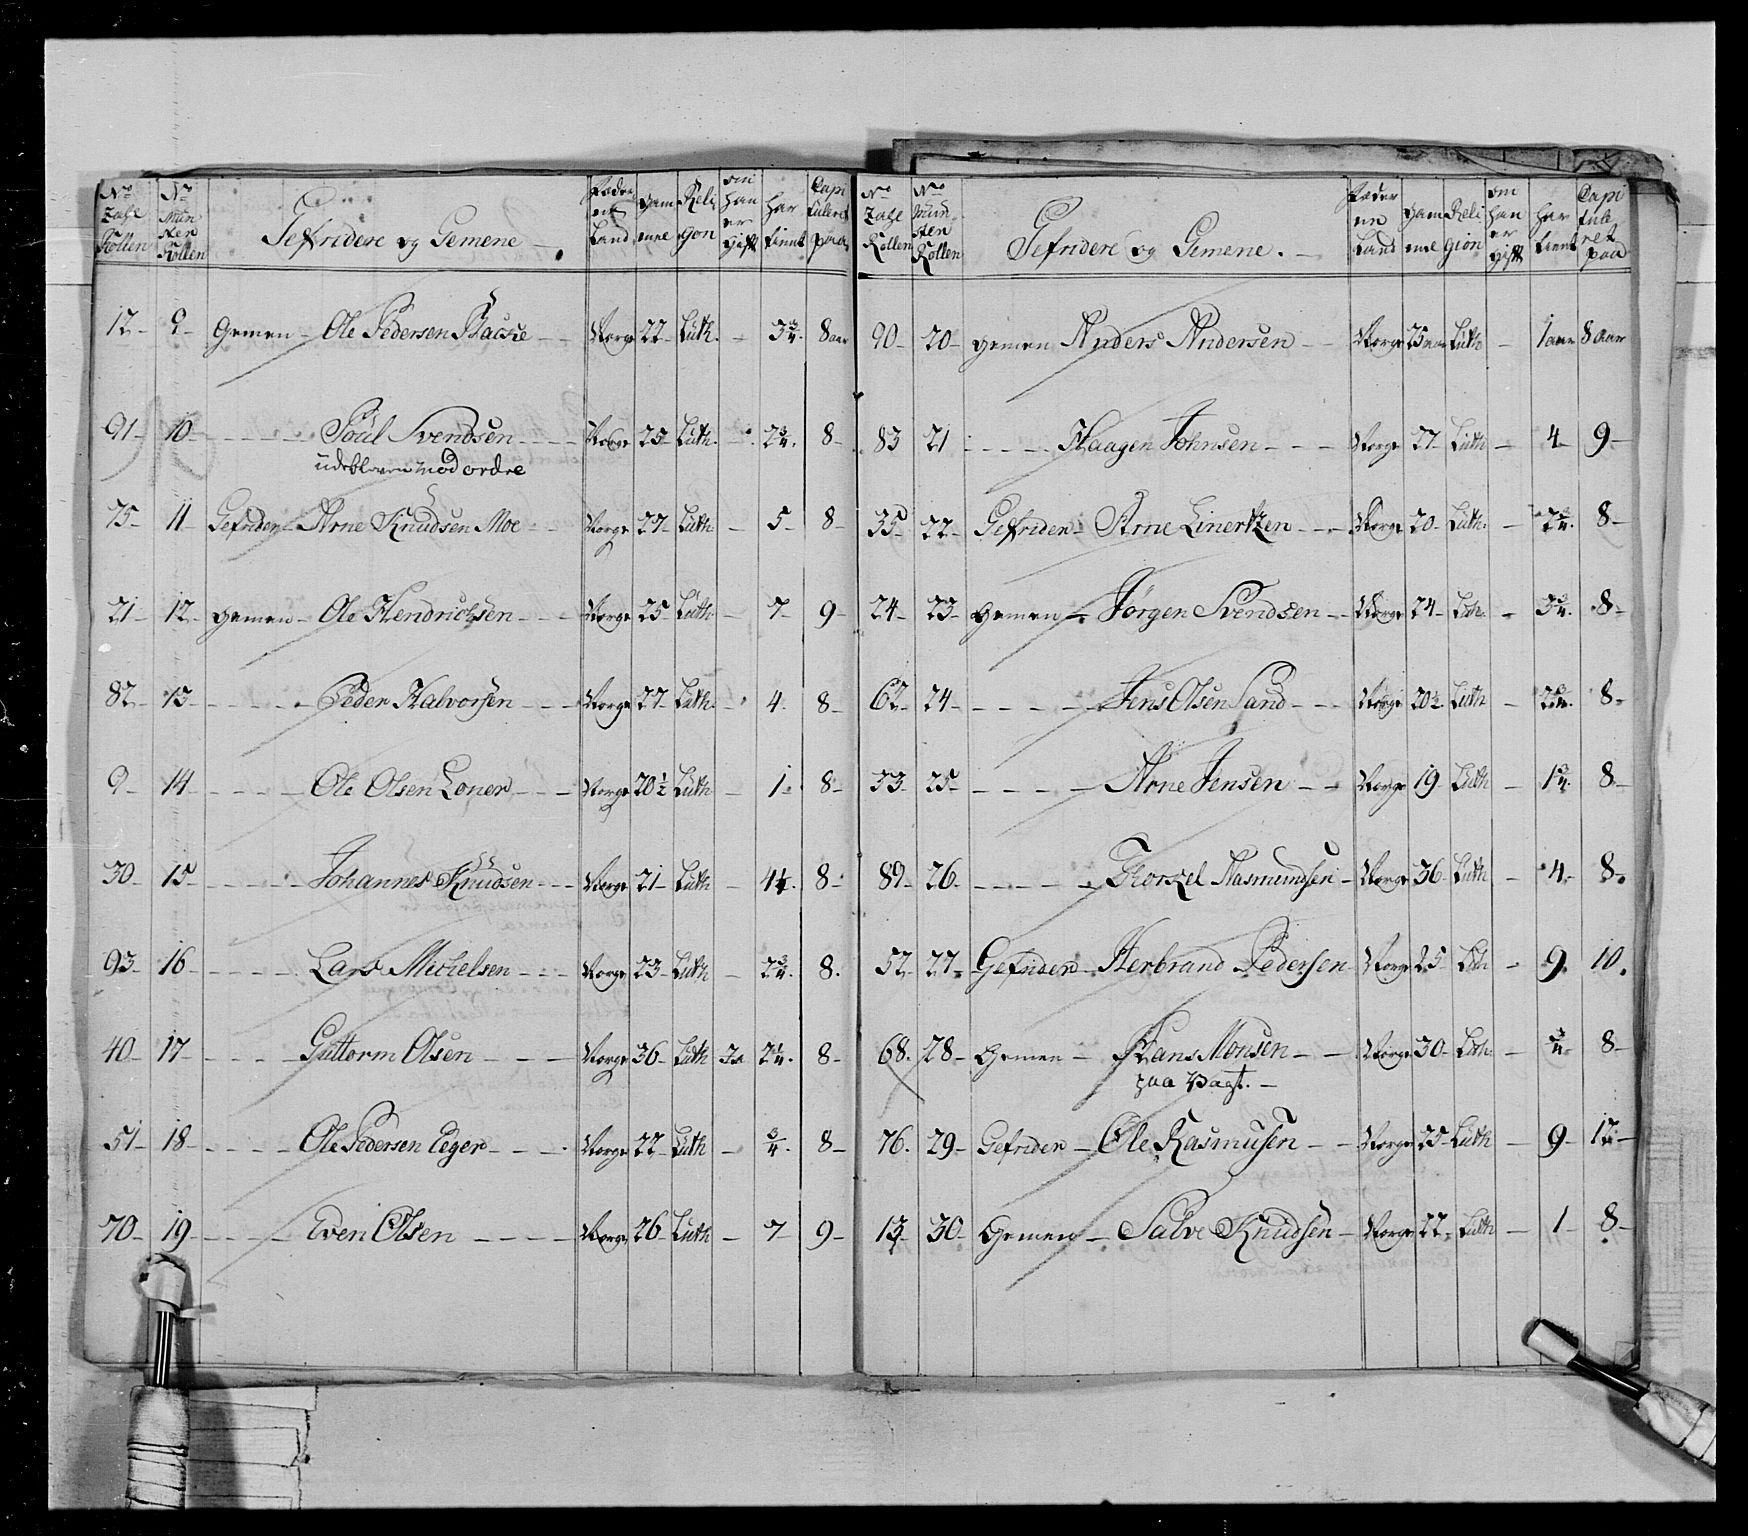 No Zahl Rollen | No Mün sten Rollen | Gefridere og Gemene | Fædre ne Land | Gam mel | Reli gion | om han er gift | har tient | Capi tuleret paa
12 - 9 - Gemen - Ole Pedersen Bache - Norge 22 - Luth. - 3 3/4. 8 aar
91 - 10 - Poül Svendsen - Norge 25 Luth. - 2 3/4. 8 -
udebleven mod ordre
75 - 11 - Gefrider - Arne Knudsen Moe - Norge 27 - Luth. - 5 - 8 -
21 - 12 - Gemen - Ole Hendrichsen - Norge 25 Luth. - 7 - 9 -
82 - 13 - Peder Halvorsen - Norge 27 Luth. - 4 - 8 -
9 - 14 - Ole Olsen Loner - Norge 20 1/2 Luth - 1 - 8 -
30 - 15 - Johannes Knudsen - Norge 21 - Luth - 4 1/4. 8 -
93 - 16 - Lars Michelsen - Norge 23 - Luth - 2 3/4. 8.
40 - 17 - Guttorm Olsen - Norge 36 - Luth Ja 2 1/4. 8 -
51 - 18 - Ole Pedersen Eeger - Norge 22 Luth - 3/4. 8 -
70 - 19 - Even Olsen - Norge 26 Luth - 7 - 9 -
No Zahl Rollen | No Mün sten Rollen | Gefridere og Gemene. | Fæder ne Land | Gam mel | Reli gion | om han er gift | har tient | Capi tule ret paa
90 - 20 - Gemen Anders Andersen - Norge 25 aar Luth - 1 aar 8 aar
83 21 - Haagen Johnsen - Norge 27 - Luth - 4 - 9 -
35 - 22 - Gefrider - Arne Linertzen - Norge 20 - Luth. - 2 3/4. 8 -
24 - 23 - Gemen - Jörgen Svendsen - Norge 24 - Luth. - 3 3/4. 8 -
62 - 24 - Jens Olsen Sand - Norge 20 1/2 Luth - 2 3/4. 8 -
33 - 25 - Arne Jensen - Norge 19 Luth - 1 3/4. 8 -
89 - 26 - Thorkel Aasmundsen - Norge 36 Luth - 4 - 8.
52 - 27 - Gefrider - Herbrand Pedersen Norge 25 Luth - 9. 10.
68. 28 - Gemen - Hans Monsen - Norge 30 - Luth. - 3/4 8 -
paa Vagt. -
76. 29 - Gefrider - Ole Rasmusen - Norge 25 - Luth - 9 - 12 -
13 - 30 - Gemen - Salve Knudsen - Norge 22 - Luth - 1 - 8 -